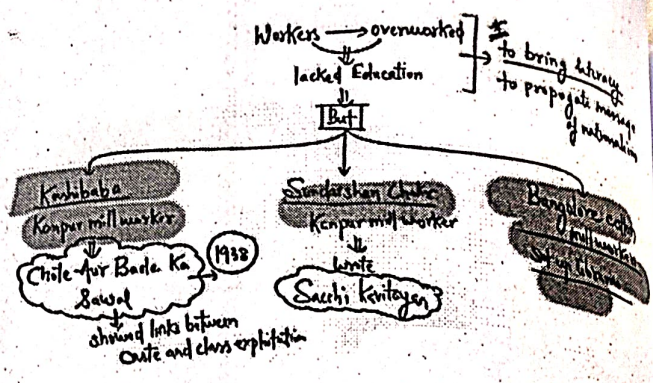 Workers → overworked
lacked Education
But
* to bring literacy
to propogate message
of nationalism
Kashibaba
Kanpur mill worker
Chote Aur Bade Ka
Sawal
1938
showed links between
Caste and class exploitation
Sundarshan Chakr
Kanpur mill worker
wrote
Sacchi Kavitayan
Bangalore cotton
mill workers
Set up libraries